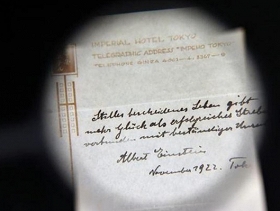 IMPERIAL HOTEL TOKYO
TELEGRAPHIC ADDRESS "IMPEHO TOKYO"
Stilles bescheidenes Leben gibt
mehr Glück als erfolgreiches Streben
verbunden mit beständiger Unruhe
Albert Einstein
November 1922. Tok